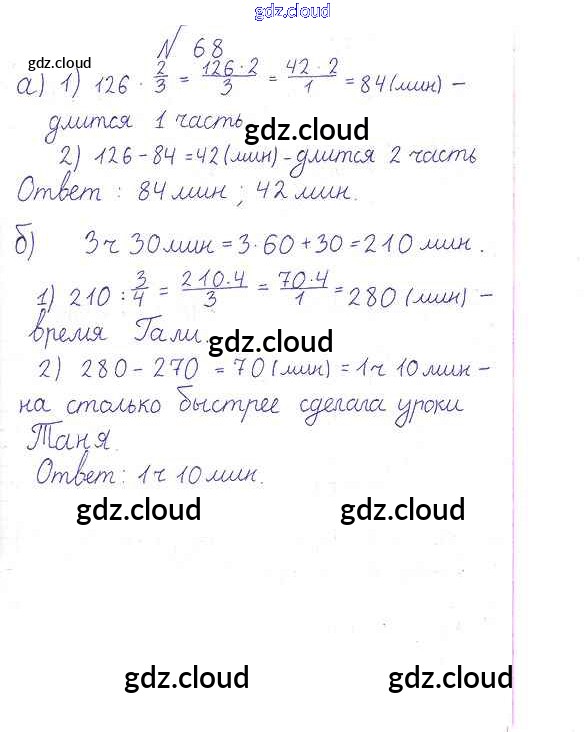 gdz.cloud
№ 68
gdz.cloud
а) 1) 126 · 2/3 = 126·2/3 = 42·2/1 = 84 (мин) -
длится 1 часть
gdz.cloud
2) 126 - 84 = 42 (мин) - длится 2 часть
Ответ : 84 мин ; 42 мин.
б) 3ч 30 мин = 3·60 + 30 = 210 мин .
1) 210 : 3/4 = 210·4/3 = 70·4/1 = 280 (мин) -
время Гали.
gdz.cloud
2) 280 - 270 = 70 (мин) = 1ч 10 мин -
на столько быстрее сделала уроки
Таня.
Ответ: 1ч 10 мин.
gdz.cloud gdz.cloud
gdz.cloud gdz.cloud